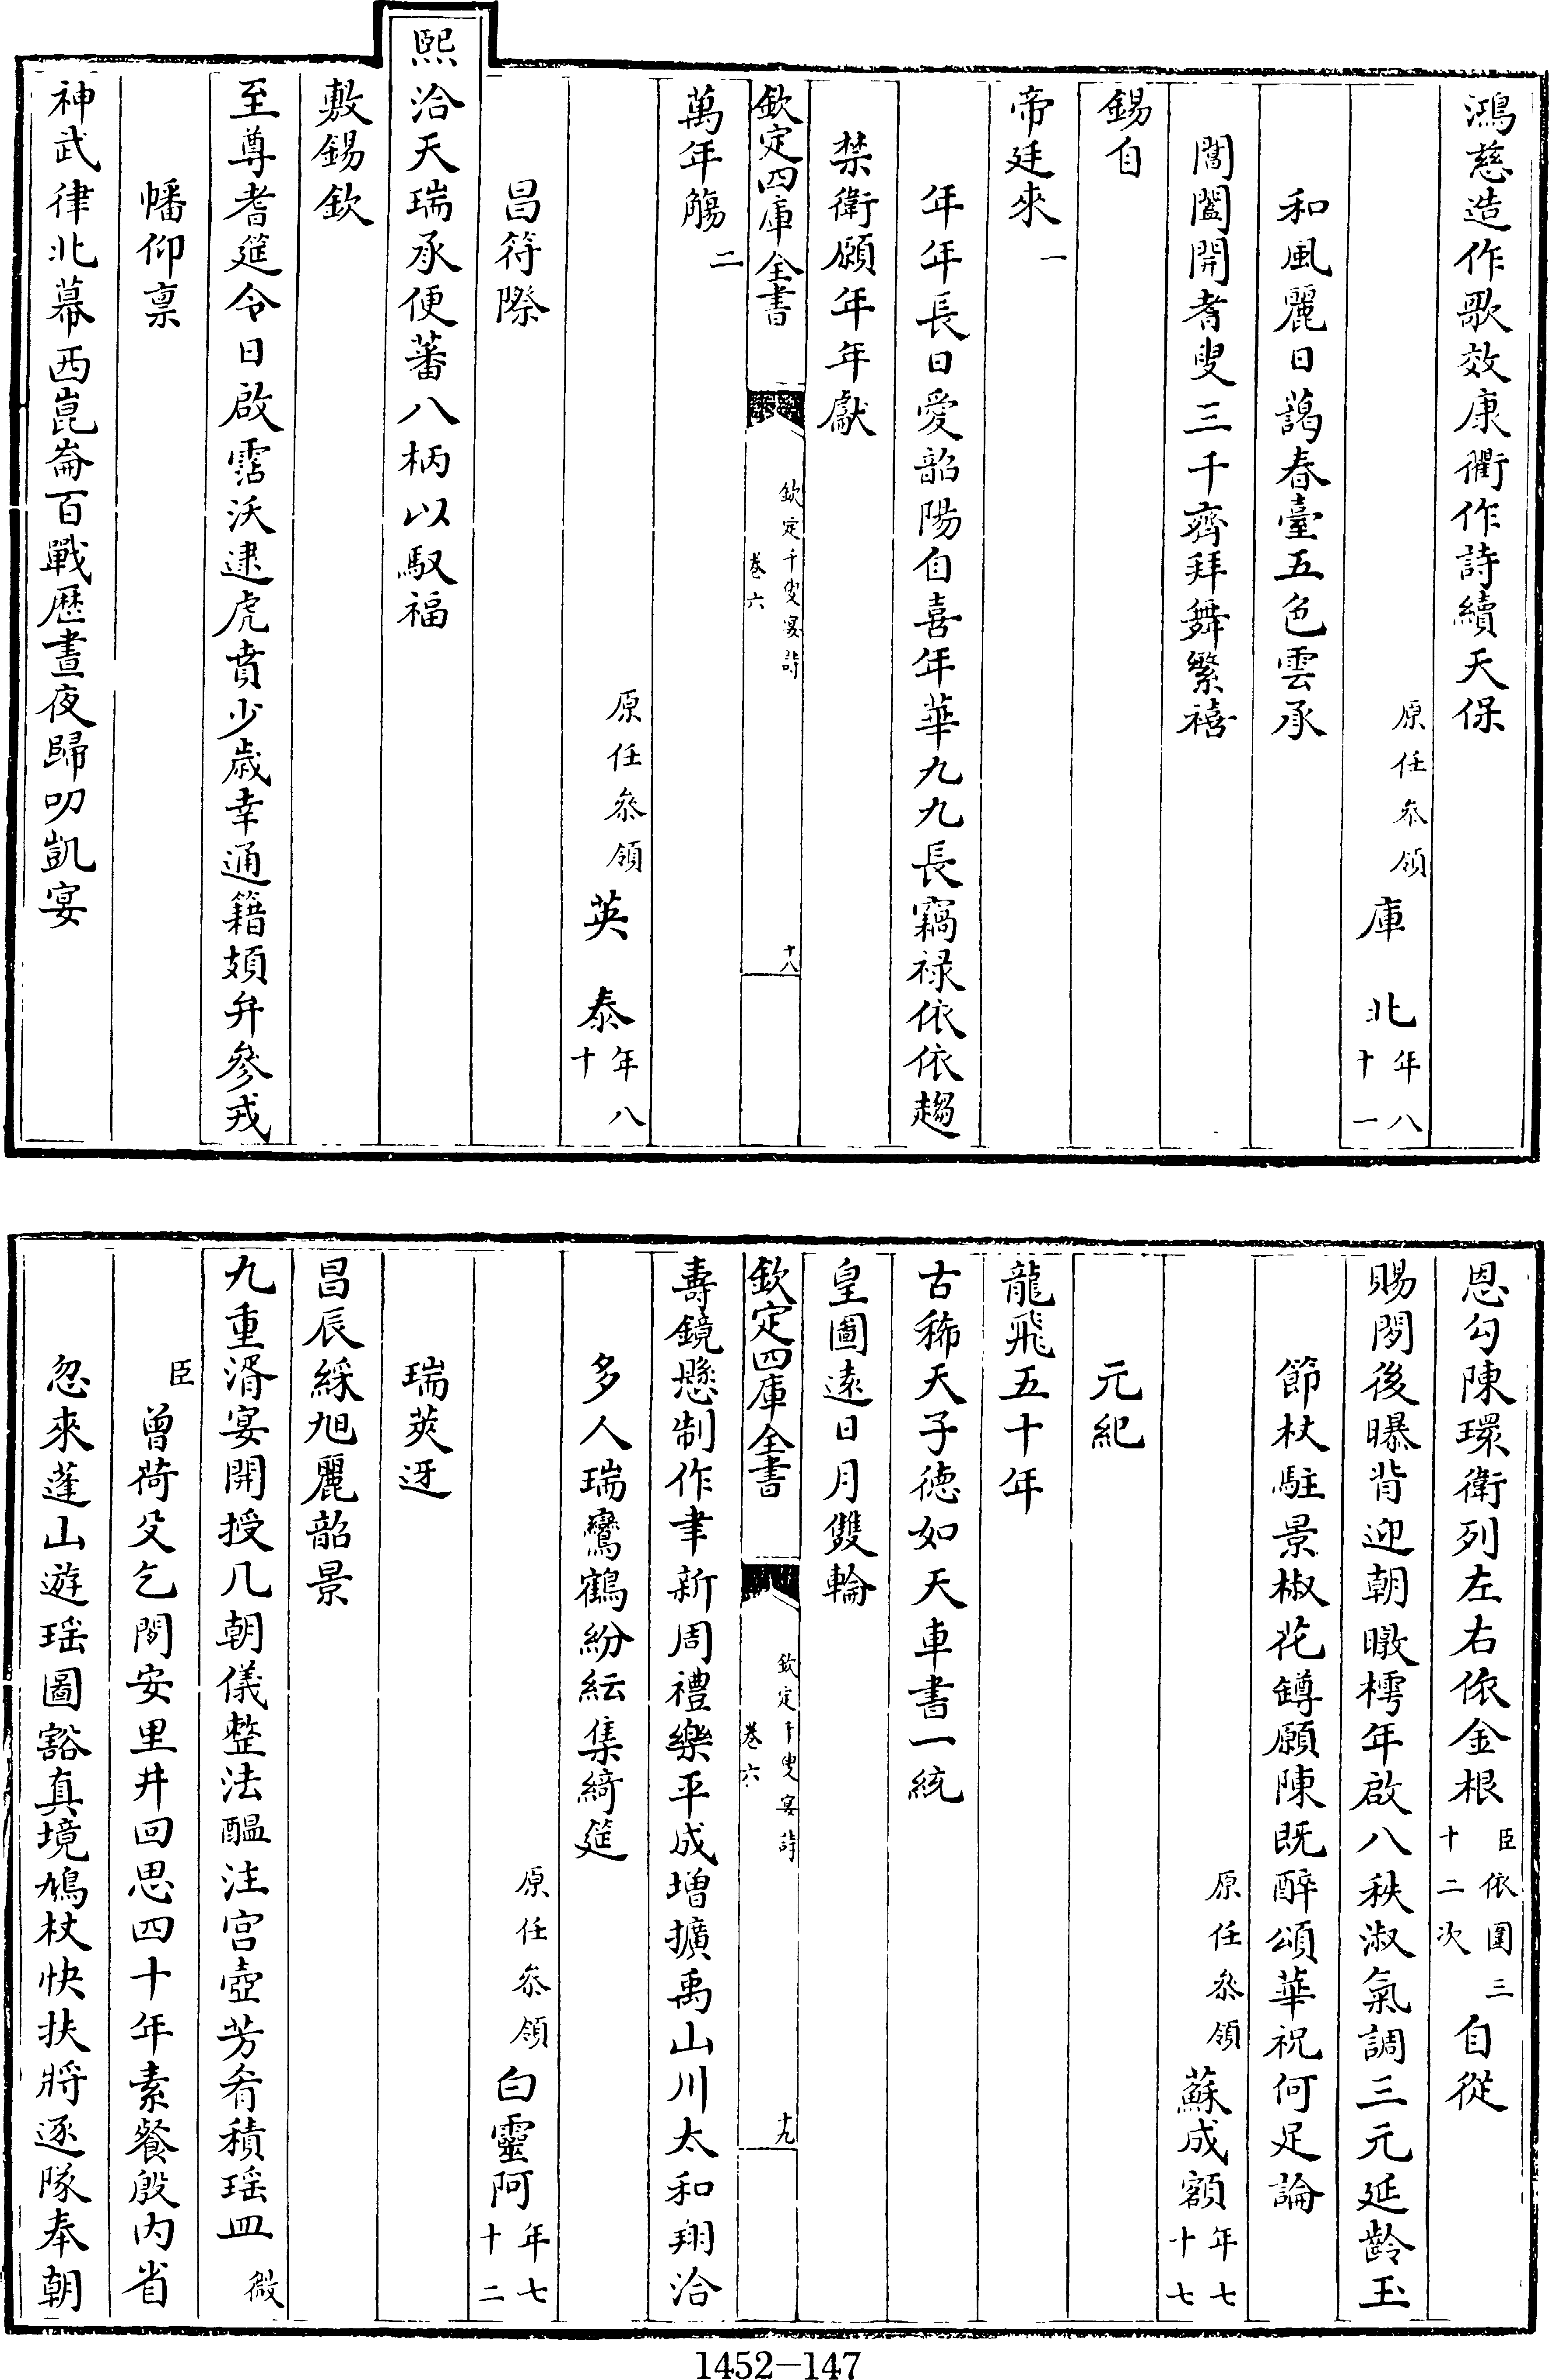 鴻慈造作歌效康衢作詩續天保
原任叅領庫北年八十一
和風麗日藹春臺五色雲承
閶闔開耆叟三千齊拜舞繁禧
錫自
帝廷來一
年年長日愛韶陽自喜年華九九長竊祿依依趨
禁衛願年年獻
欽定四庫全書
欽定千叟宴詩
卷六
十八
萬年觴二
原任叅領英泰年八十
昌符際
熙洽天瑞承便蕃八柄以馭福
敷錫欽
至尊耆筵令日啟霑沃逮虎賁少歲幸通籍頍弁參戎
幡仰禀
神武律北幕西崑崙百戰歷晝夜歸叨凱宴
恩勾陳環衛列左右依金根臣依圍三十二次自從
賜閒後曝背迎朝暾樗年啟八秩淑氣調三元延齡玉
節杖駐景椒花罇願陳既醉頌華祝何足論
原任叅領蘇成額年七十七
元紀
龍飛五十年
古稀天子德如天車書一統
皇圖遠日月雙輪
欽定四庫全書
欽定千叟宴詩
卷六
十九
壽鏡懸制作聿新周禮樂平成增擴禹山川太和翔洽
多人瑞鸞鶴紛紜集綺筵
原任叅領白靈阿年七十二
瑞莢迓
昌辰綵旭麗韶景
九重湑宴開授几朝儀整法醖注宫壺芳肴積瑶皿微
臣曾荷殳乞閒安里井回思四十年素餐殷内省
忽來蓬山遊瑶圖豁真境鳩杖快扶將逐隊奉朝
1452-147